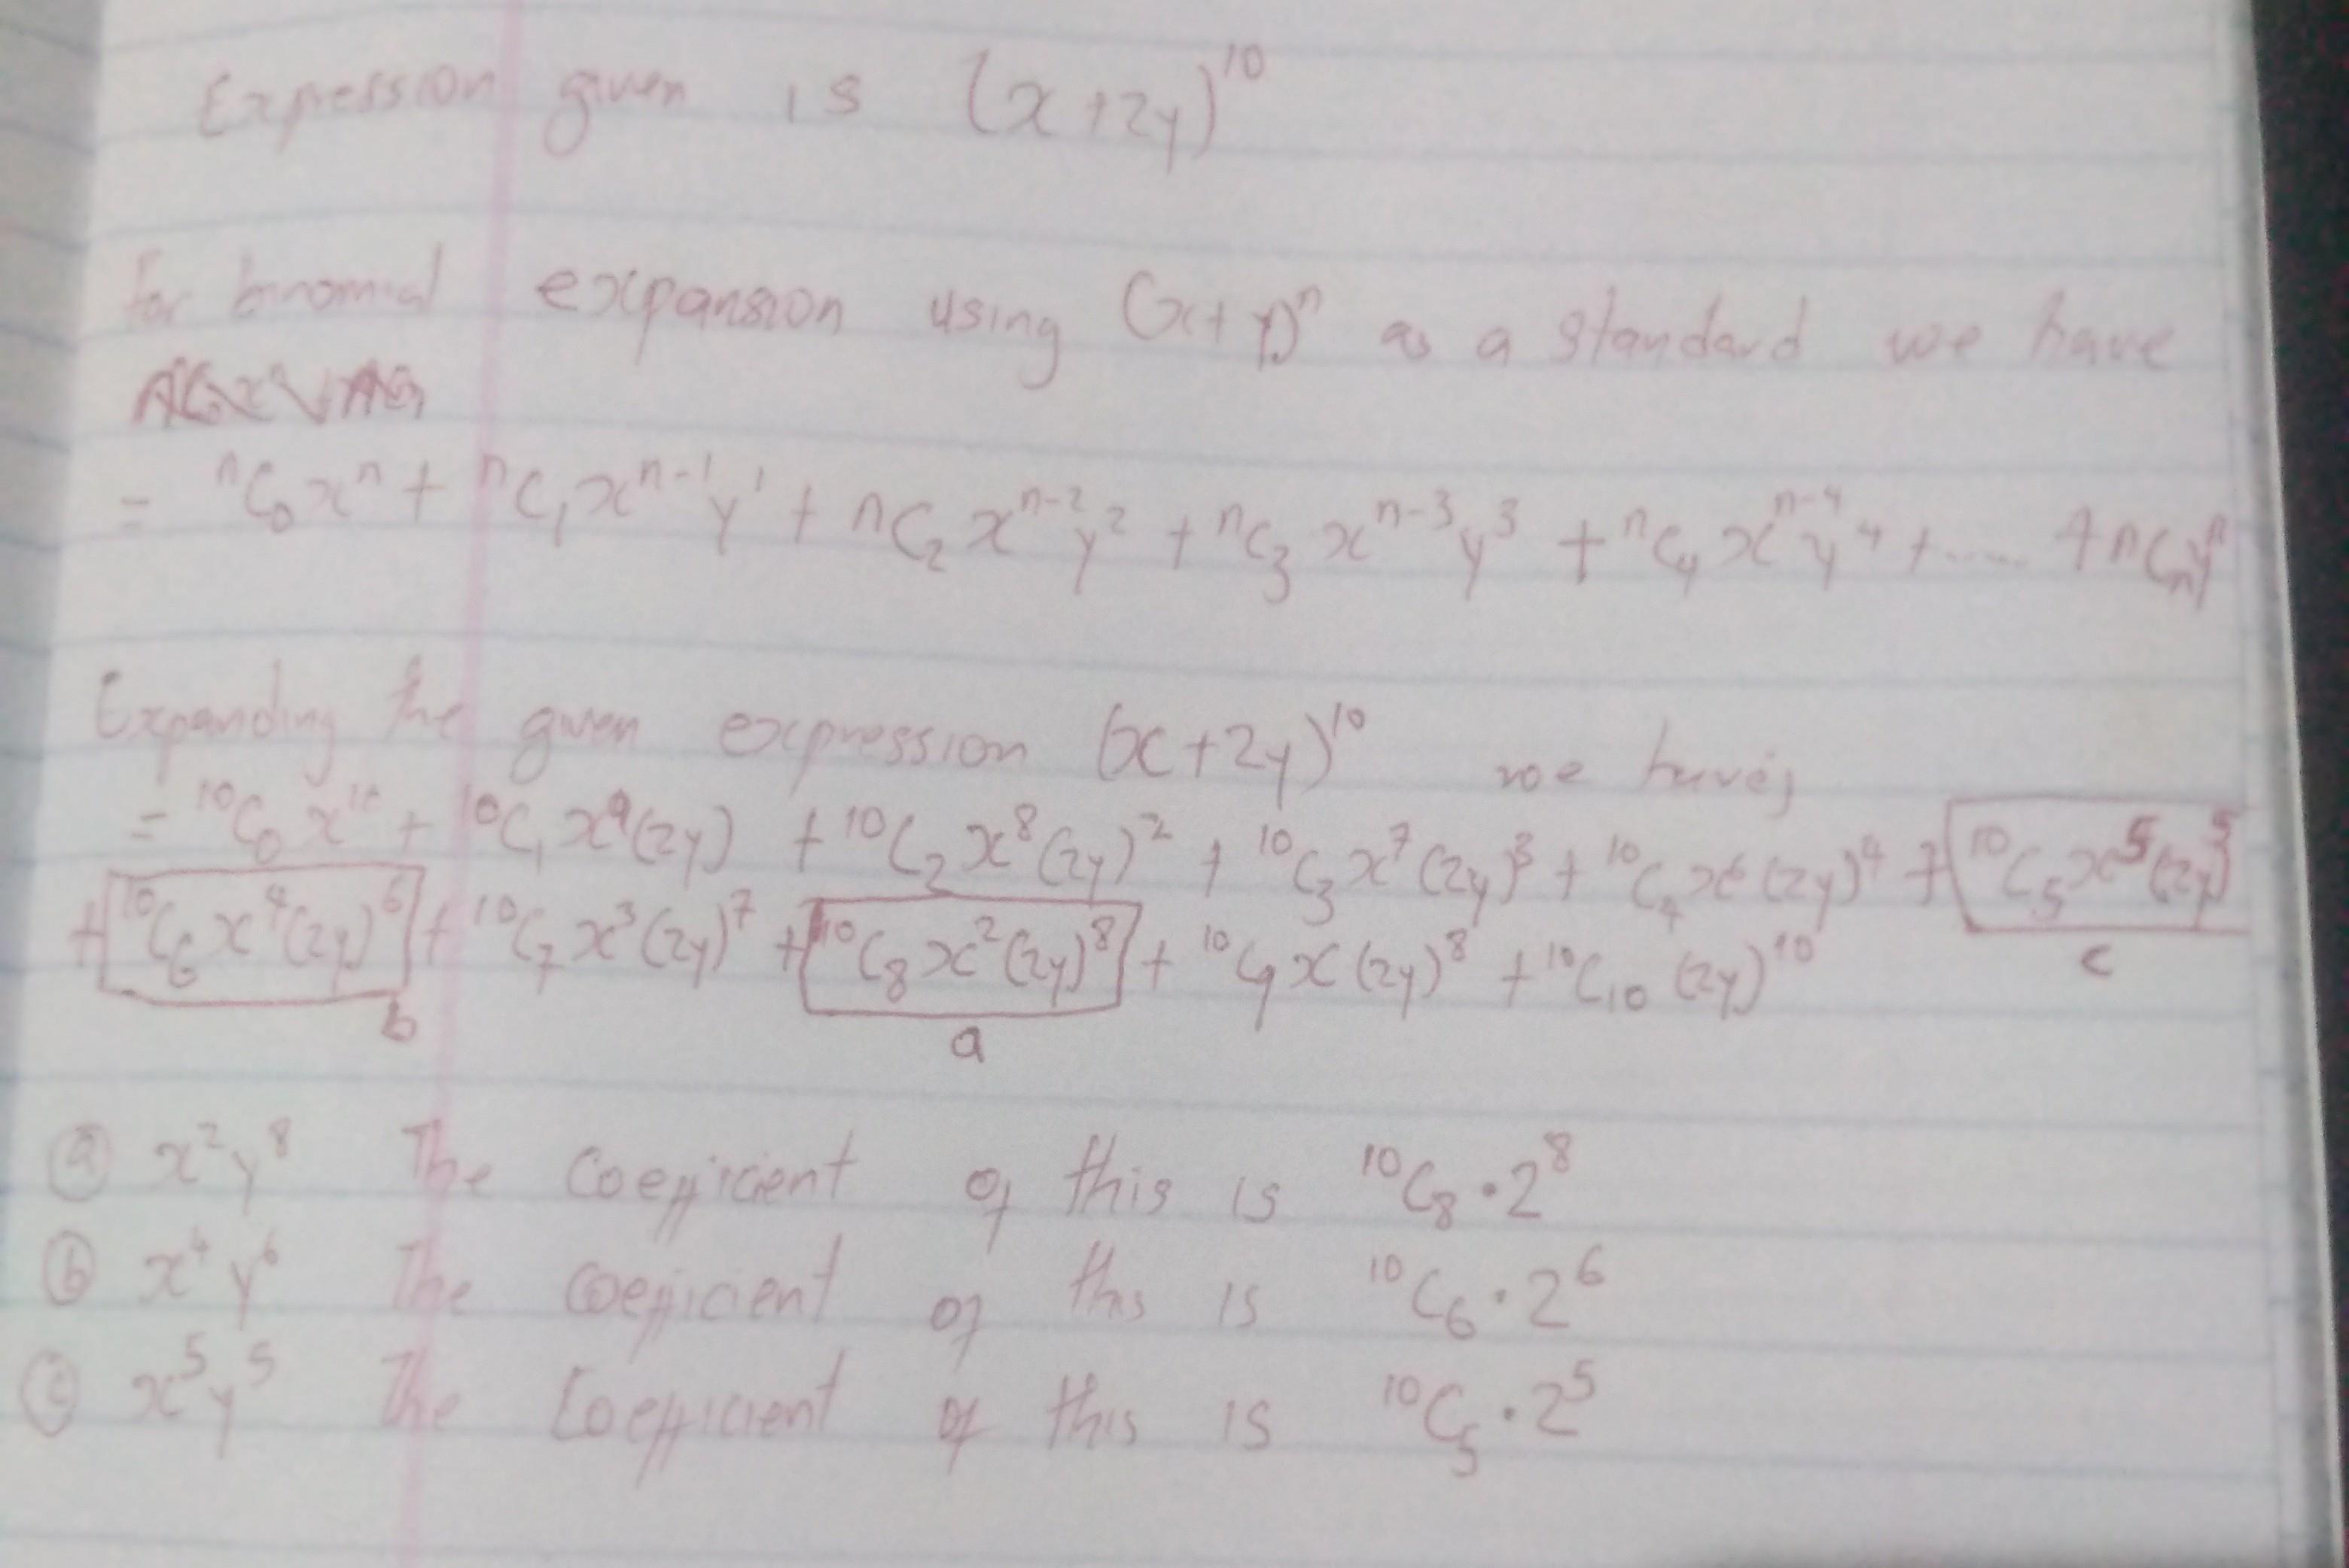 Expression given is (x+2y)¹⁰
For binomial expansion using (x+y)ⁿ as a standard we have
= ⁿC₀xⁿ + ⁿC₁xⁿ⁻¹y¹ + ⁿC₂xⁿ⁻²y² + ⁿC₃xⁿ⁻³y³ + ⁿC₄xⁿ⁻⁴y⁴ + ..... + ⁿCₙyⁿ
Expanding the given expression (x+2y)¹⁰ we have;
= ¹⁰C₀x¹⁰ + ¹⁰C₁x⁹(2y) + ¹⁰C₂x⁸(2y)² + ¹⁰C₃x⁷(2y)³ + ¹⁰C₄x⁶(2y)⁴ + ¹⁰C₅x⁵(2y)⁵
+ ¹⁰C₆x⁴(2y)⁶ + ¹⁰C₇x³(2y)⁷ + ¹⁰C₈x²(2y)⁸ + ¹⁰C₉x(2y)⁸ + ¹⁰C₁₀(2y)¹⁰
c
b
a
ⓐ x²y⁸ The Coefficient of this is ¹⁰C₈·2⁸
ⓑ x⁴y⁶ The coefficient of this is ¹⁰C₆·2⁶
ⓒ x⁵y⁵ The Coefficient of this is ¹⁰C₅·2⁵